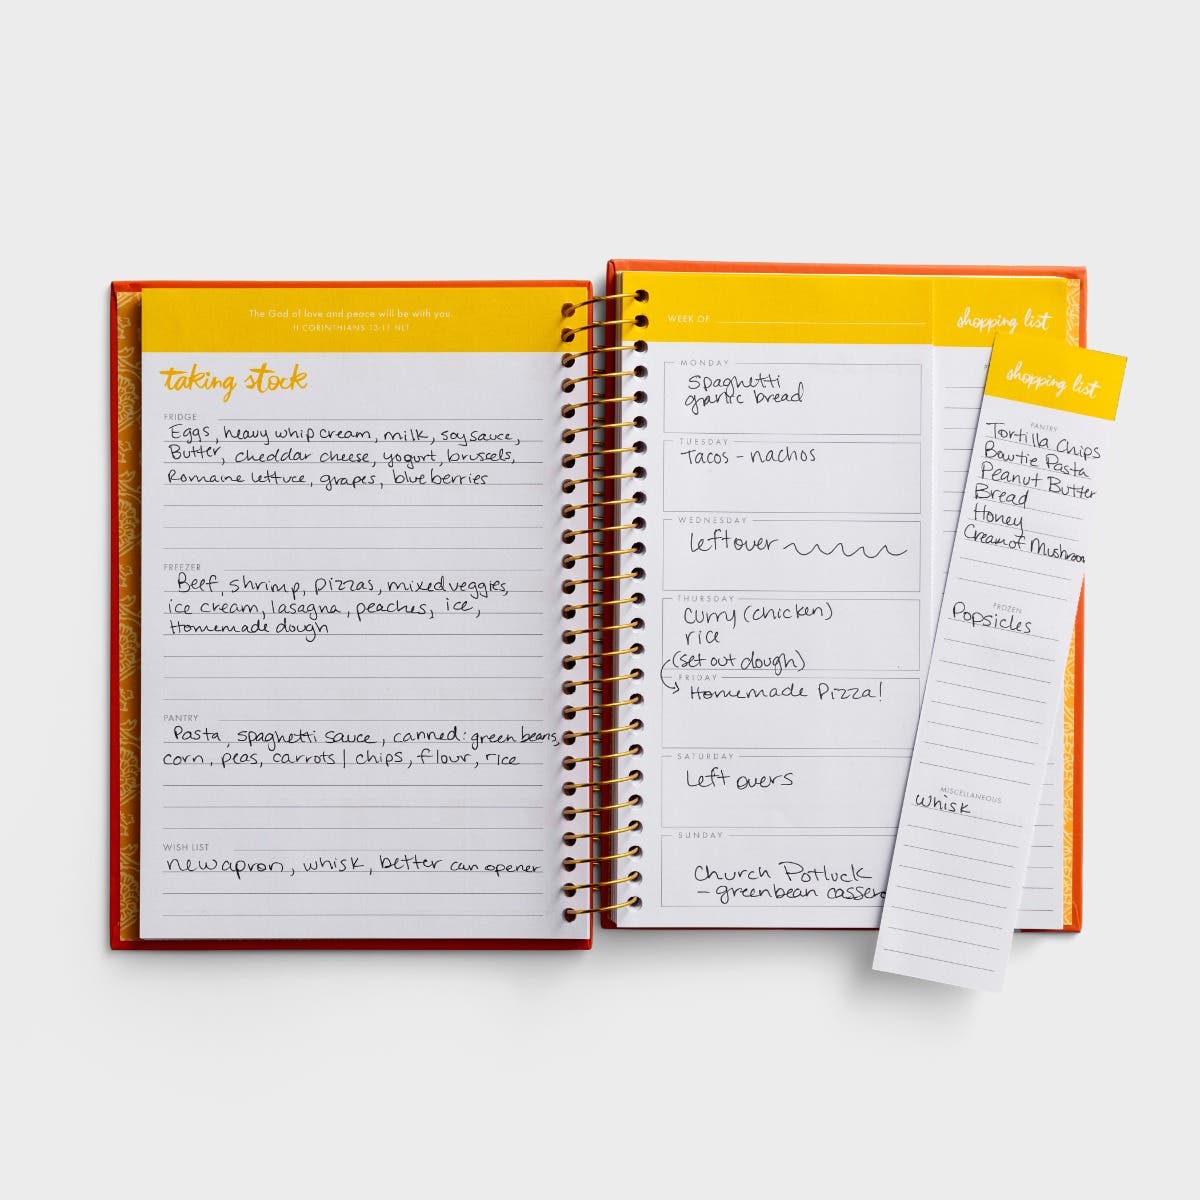 The God of love and peace will be with you.
II CORINTHIANS 13:11 NLT
taking stock
FRIDGE
Eggs, heavy whip cream, milk, soy sauce,
Butter, cheddar cheese, yogurt, brussels,
Romaine lettuce, grapes, blueberries
FREEZER
Beef, shrimp, pizzas, mixed veggies,
ice cream, lasagna, peaches, ice,
Homemade dough
PANTRY
Pasta, spaghetti sauce, canned: green beans,
corn, peas, carrots | chips, flour, rice
WISH LIST
new apron, whisk, better can opener
WEEK OF
MONDAY
spaghetti
garlic bread
TUESDAY
Tacos - nachos
WEDNESDAY
Leftover
THURSDAY
Curry (chicken)
rice
(set out dough)
FRIDAY
Homemade Pizza!
SATURDAY
Left overs
SUNDAY
Church Potluck
- greenbean cassero
shopping list
shopping list
PANTRY
Tortilla Chips
Bowtie Pasta
Peanut Butter
Bread
Honey
Cream of Mushroom
FROZEN
Popsicles
MISCELLANEOUS
whisk